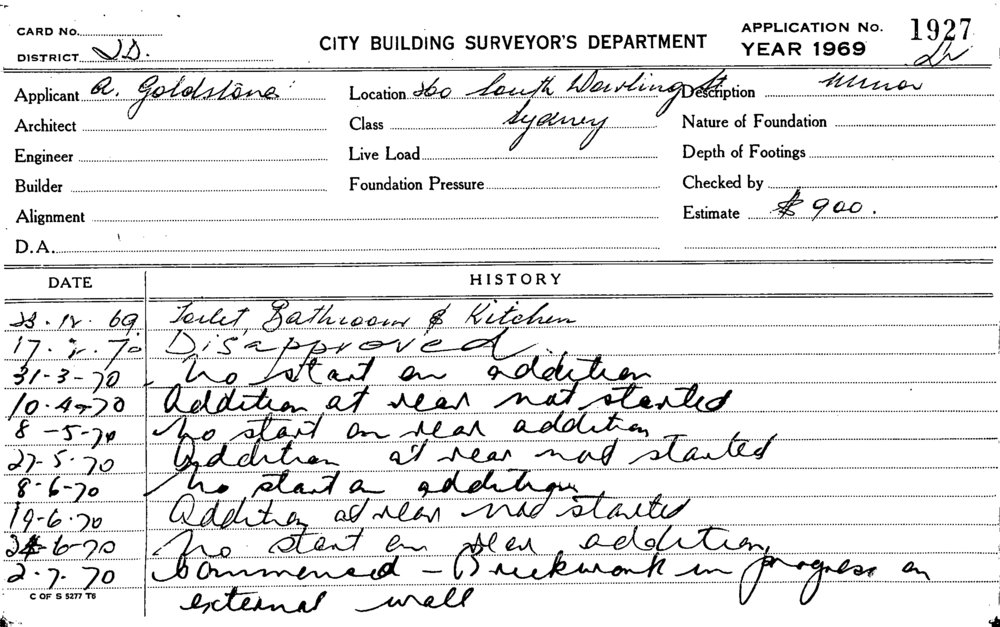 CARD No.
DISTRICT
CITY BUILDING SURVEYOR'S DEPARTMENT
APPLICATION No. 1927
YEAR 1969
Applicant A. Goldstone
Location 360 South Dowling St
Sydney
Description Minor
Architect
Class
Nature of Foundation
Engineer
Live Load
Depth of Footings
Builder
Foundation Pressure
Checked by
Alignment
Estimate $900.
D.A.
DATE HISTORY
23.12.69 Toilet, Bathroom & Kitchen
17.2.70 Disapproved
31-3-70 No start on addition
10.4-70 Addition at rear not started
8-5-70 No start on rear addition
27-5.70 Addition at rear not started
8-6-70 No start on addition
19-6.70 Addition at rear not started
24-6-70 No start on rear addition
2.7.70 Commenced - Brickwork in progress on
external wall
C OF S 5277 T6